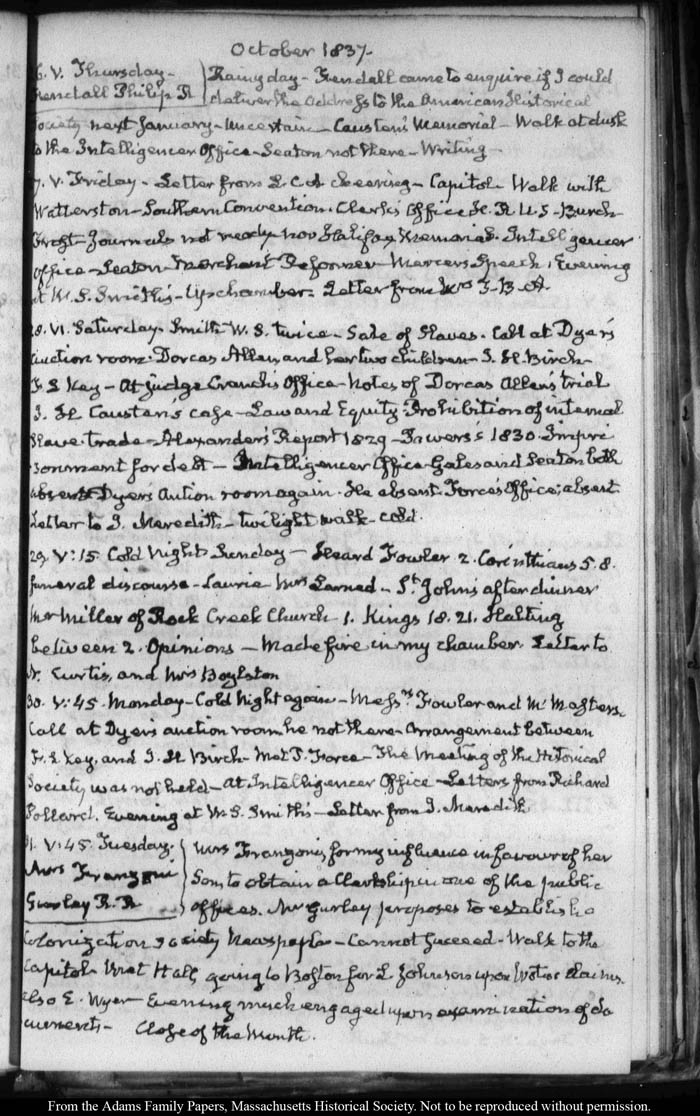 October 1837.
26. V. Thursday- Rainy day - Fendall came to enquire if I could
Fendall Philip R deliver the Address to the American Historical
Society next January - Uncertain - Causten's Memorial - Walk at dusk
to the Intelligencer Office - Seaton not there - Writing
27. V. Friday - Letter from L. C. A. Evening - Capitol - Walk with
Watterston - Southern Convention. Clerk's Office H. R. U. S - Burch
Frost - Journals not ready nor Halifax Memorial. Intelligencer
Office - Seaton - Merchant Reformer - Mercer's Speech, Evening
at W. S. Smith's - Upchamber. Letter from Mrs J-B-A.
28. VI. Saturday. Smith W. S. twice - Sale of Slaves. Call at Dyer's
auction room. Dorcas Allen, and her two children - J. H. Birch -
F. S Key - At Judge Cranch's Office - Notes of Dorcas Allen's trial
J. H Causten's case - Law and Equity. Prohibition of internal
Slave trade - Alexander's Report 1829 - Powers's 1830. Impri
sonment for debt - Intelligencer Office Gales and Seaton both
absent. Dyer's Aution room again. He absent. Force's Office; absent
Letter to J. Meredith - twilight walk - cold.
29. V:15 Cold Night Sunday - Heard Fowler 2. Corinthians 5.8.
funeral discourse - Laurie Mrs Larned - St. John's after dinner
Mr Miller of Rock Creek Church 1. Kings 18.21. Halting
between 2. Opinions - Made fire in my chamber. Letter to
Dr. Curtis, and Mrs Boylston
30. V:45. Monday - Cold Night again - Messrs Fowler and McMasters.
Call at Dyer's auction room he not there - Arrangement between
F. S Key, and J. H Birch - Met P. Force - The meeting of the Historical
Society was not held - At Intelligencer Office - Letters from Richard
Pollard. Evening at W. S. Smith's - Letter from J. Meredith
31. V:45. Tuesday. Mrs Franzoni, for my influence in favour of her
Mrs Franzoni Son, to obtain a Clerkship in one of the public
Gurley R. R offices. Mr Gurley proposes to establish a
Colonization Society Newspaper - Cannot succeed - Walk to the
Capitol. Met Hall, going to Boston for L Johnson upon Claims.
also E. Wyer - Evening much engaged upon examination of do
cuments - Close of the Month.
From the Adams Family Papers, Massachusetts Historical Society. Not to be reproduced without permission.